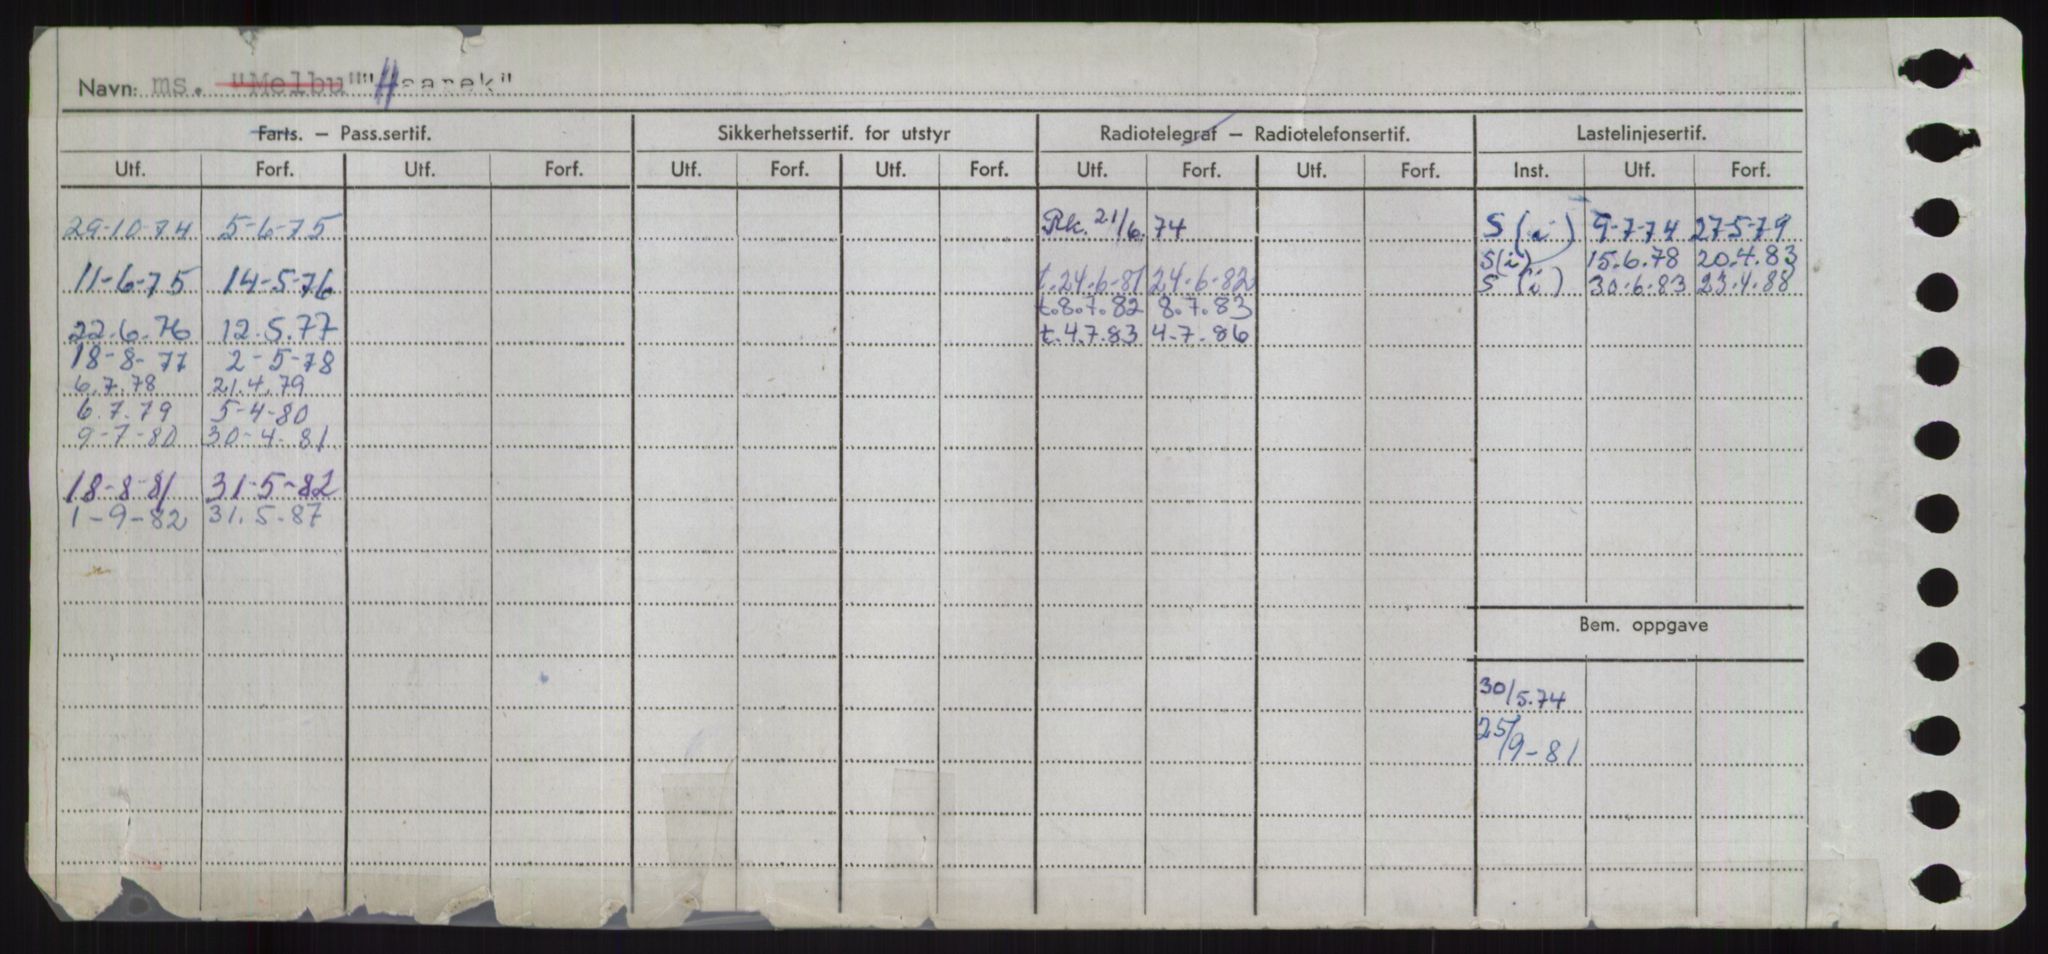 Navn: ms. "Melbu" "Haarek"
Farts. – Pass.sertif. Sikkerhetssertif. for utstyr Radiotelegraf – Radiotelefonsertif. Lastelinjesertif.
Utf. Forf. Utf. Forf. Utf. Forf. Utf. Forf. Utf. Forf. Utf. Forf. Inst. Utf. Forf.
29-10-74 5-6-75 Rk. 21/6.74 S (i) 9-7-74 27-5-79
S(i) 15.6.78 20.4.83
11-6-75 14-5-76 t.24-6-81 24-6-82 S (i) 30-6-83 23.4.88
t.8.7.82 8.7.83
22.6.76 12.5.77 t.4.7.83 4-7.86
18-8-77 2-5-78
6.7.78 21.4.79
6.7.79 5-4-80
9-7-80 30-4-81
18-8-81 31-5-82
1-9-82 31.5-87
Bem. oppgave
30/5.74
25/9-81